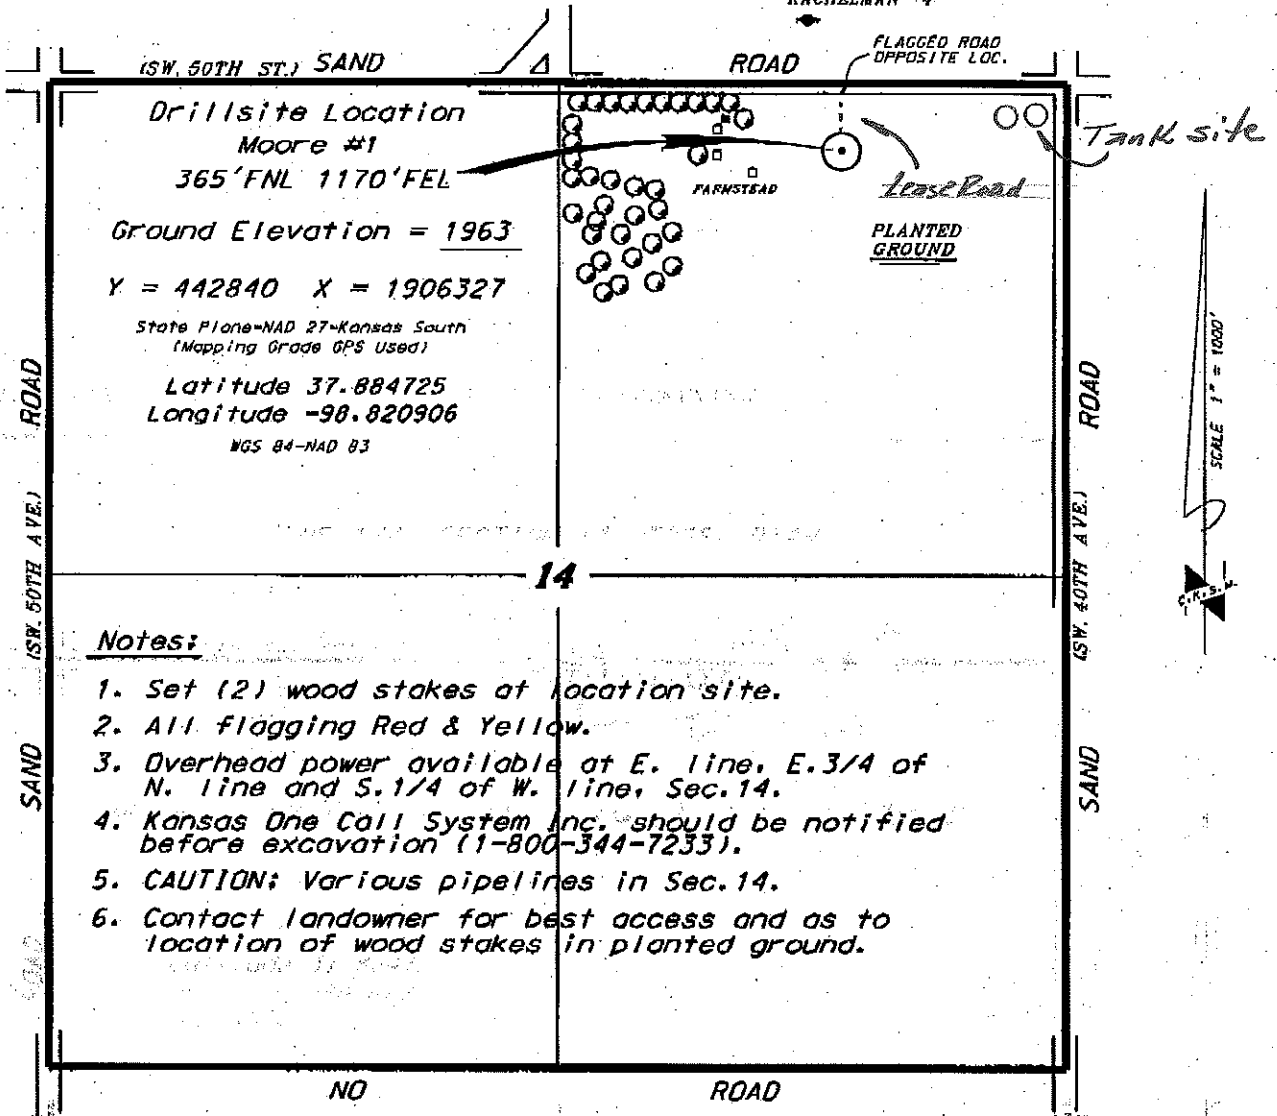 (SW. 50TH ST.) SAND
ROAD
FLAGGED ROAD
OPPOSITE LOC.
Drillsite Location
Moore #1
365'FNL 1170'FEL
Ground Elevation = 1963
Y = 442840 X = 1906327
State Plane-NAD 27-Kansas South
(Mapping Grade GPS Used)
Latitude 37.884725
Longitude -98.820906
WGS 84-NAD 83
FARMSTEAD
Tank site
Lease Road
PLANTED
GROUND
SCALE 1" = 1000'
C.K.S.M.
ROAD
(SW. 50TH AVE.)
SAND
ROAD
(SW. 40TH AVE.)
SAND
14
Notes:
1. Set (2) wood stakes at location site.
2. All flagging Red & Yellow.
3. Overhead power available at E. line, E.3/4 of
N. line and S.1/4 of W. line, Sec.14.
4. Kansas One Call System Inc. should be notified
before excavation (1-800-344-7233).
5. CAUTION: Various pipelines in Sec.14.
6. Contact landowner for best access and as to
location of wood stakes in planted ground.
NO
ROAD